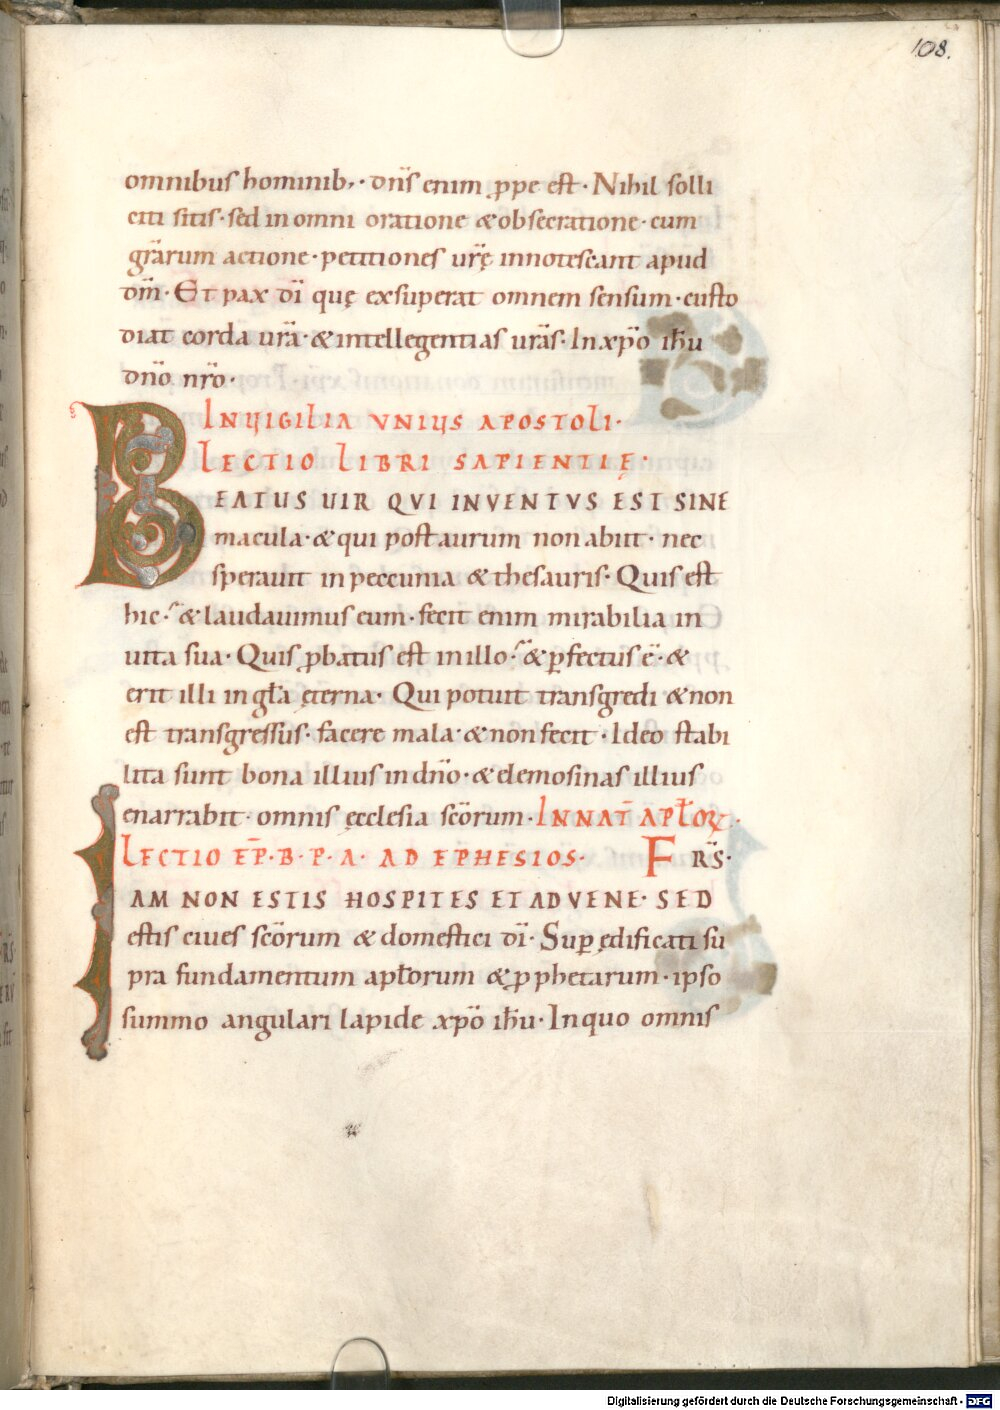 108.
omnibus hominib; · dn̄s enim ꝓpe est · Nihil solli
citi sitis · sed in omni oratione & obsecratione · cum
gr̄arum actione · petitiones ur̄ę innotescant apud
dm̄ · Et pax dī quę exsuperat omnem sensum · custo
diat corda ur̄a · & intellegentias ur̄as · In xp̄o ih̄u
dn̄o nr̄o ·
IN VIGILIA VNIUS APOSTOLI ·
LECTIO LIBRI SAPIENTIĘ ·
BEATUS UIR QVI INVENTVS EST SINE
macula · & qui post aurum non abiit · nec
sperauit in peccunia & thesauris · Quis est
hic · & laudauimus eum · fecit enim mirabilia in
uita sua · Quis ꝓbatus est in illo · & ꝑfectus ē · &
erit illi in gl̄a ęterna · Qui potuit transgredi & non
est transgressus · facere mala · & non fecit · Ideo stabi
lita sunt bona illius in dn̄o · & elemosinas illius
enarrabit · omnis ęcclesia sc̄orum · IN NAT̄ APL̄OꝜ ·
LECTIO EP̄ · B · P · A · AD EPHESIOS · FRS̄ ·
IAM NON ESTIS HOSPITES ET ADVENE · SED
estis ciues sc̄orum & domestici dī · Suꝑ ędificati su
pra fundamentum apl̄orum & ꝓphetarum · ipso
summo angulari lapide xp̄o ih̄u · In quo omnis
Digitalisierung gefördert durch die Deutsche Forschungsgemeinschaft - DFG